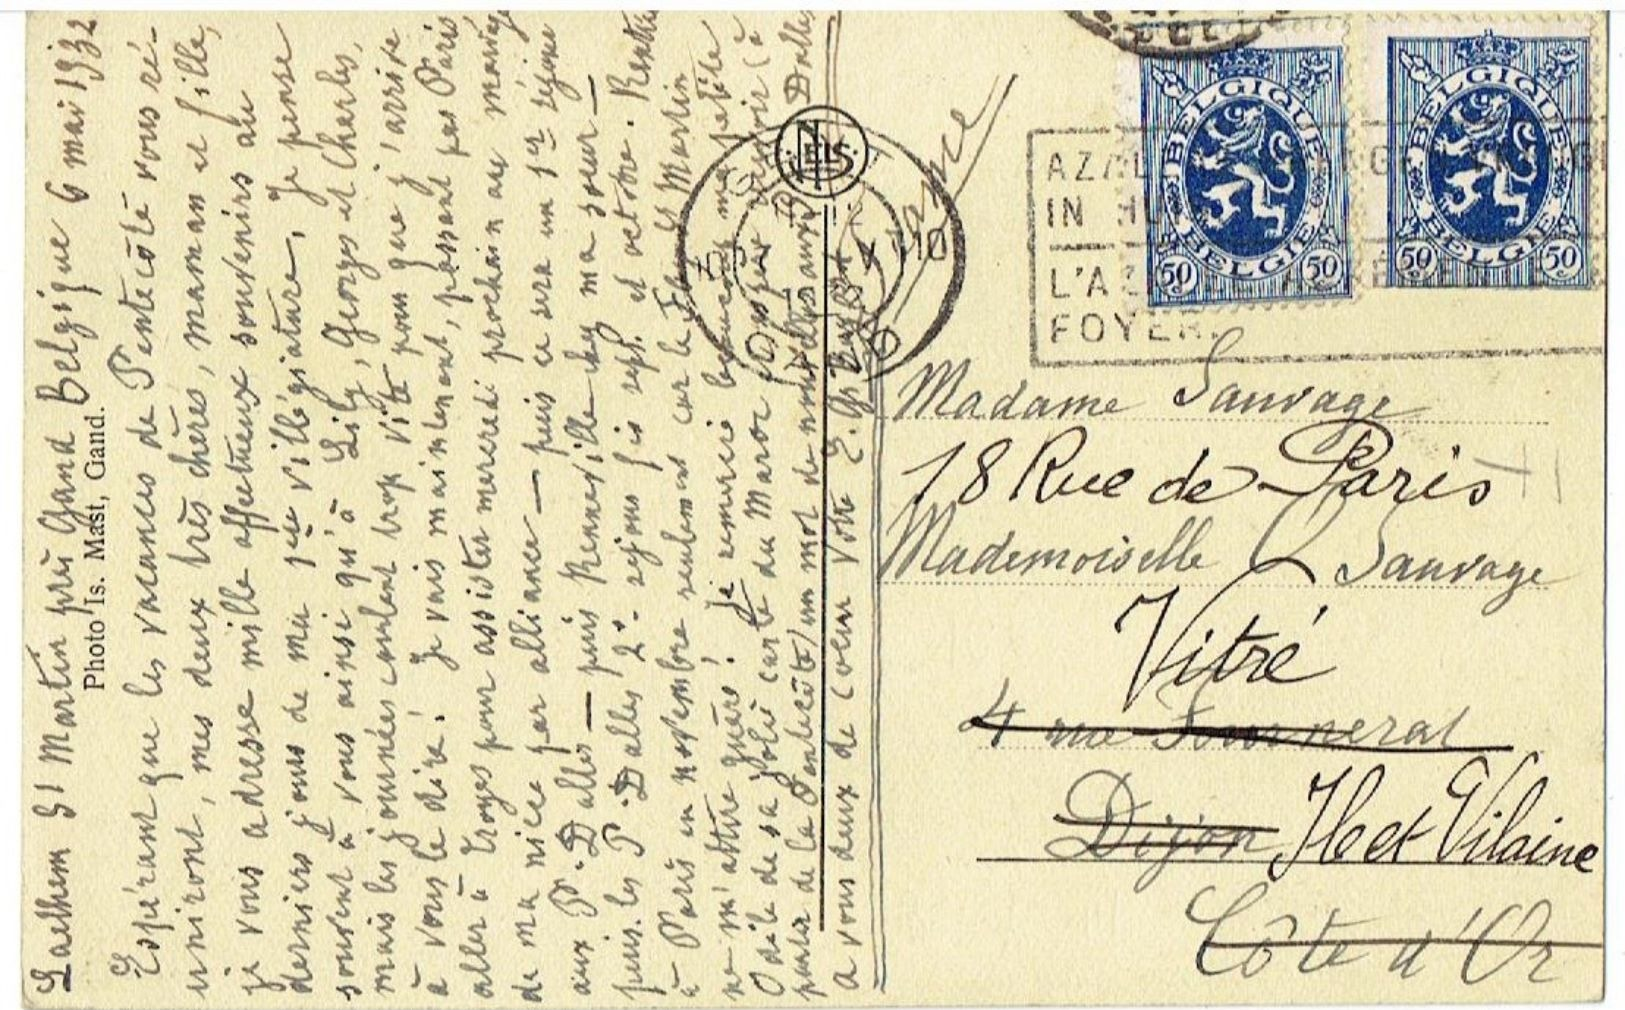 Laethem St Martin près Gand Belgique 6 mai 1932
Photo Is. Mast, Gand.
Espérant que les vacances de Pentecôte vous ré-
uniront, mes deux très chères, maman et fille,
je vous adresse mille affectueux souvenirs au
derniers jours de ma 1ère villégiature, Je pense
souvent à vous ainsi qu'à Lily, Georges et Charles,
mais les journées coulent trop vite pour que j'arrive
à vous le dire! Je vais maintenant, passant par Paris
aller à Troyes pour assister mercredi prochain au mariage
de ma nièce par alliance — puis ce sera un 1er séjour
aux Ptes Dalles — puis Renneville chez ma sœur —
puis les Ptes Dalles 2e séjour fin sept. et octobre. Rentrée
à Paris en novembre seulement car le Fbg St Martin
ne m'attire guère! Je remercie beaucoup ma petite
Odile de sa jolie carte du Maroc
parlé de la un mot de nouvelles aux Dalles
a vous deux de coeur Votre
NELS
France
BELGIQUE
BELGIE
50 50
BELGIQUE
BELGIE
50 50
IN
L'AZ
FOYER.
Madame Sauvage
18 Rue de Paris
Mademoiselle Sauvage
Vitré
4 rue Fourneral
Dijon Ile et Vilaine
Côte d'Or